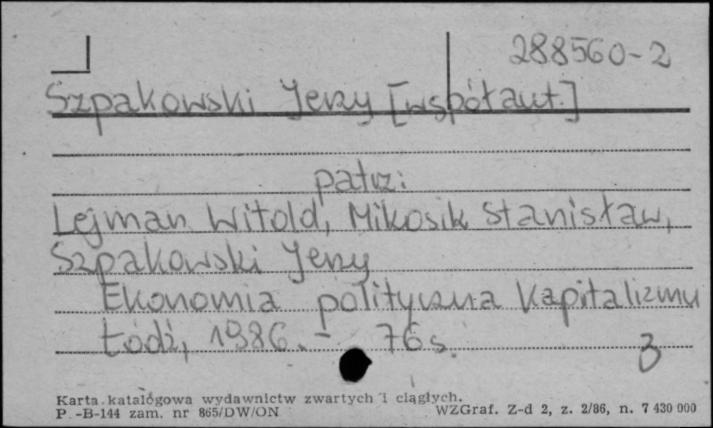 288560-2
Szpakowski Jerzy [współaut.]
patrz:
Lejman Witold, Mikosik Stanisław,
Szpakowski Jerzy
Ekonomia polityczna kapitalizmu
Łódź, 1986. - 76 s.
3
Karta katalogowa wydawnictw zwartych i ciągłych.
P.-B-144 zam. nr 865/DW/ON WZGraf. Z-d 2, z. 2/86, n. 7 430 000